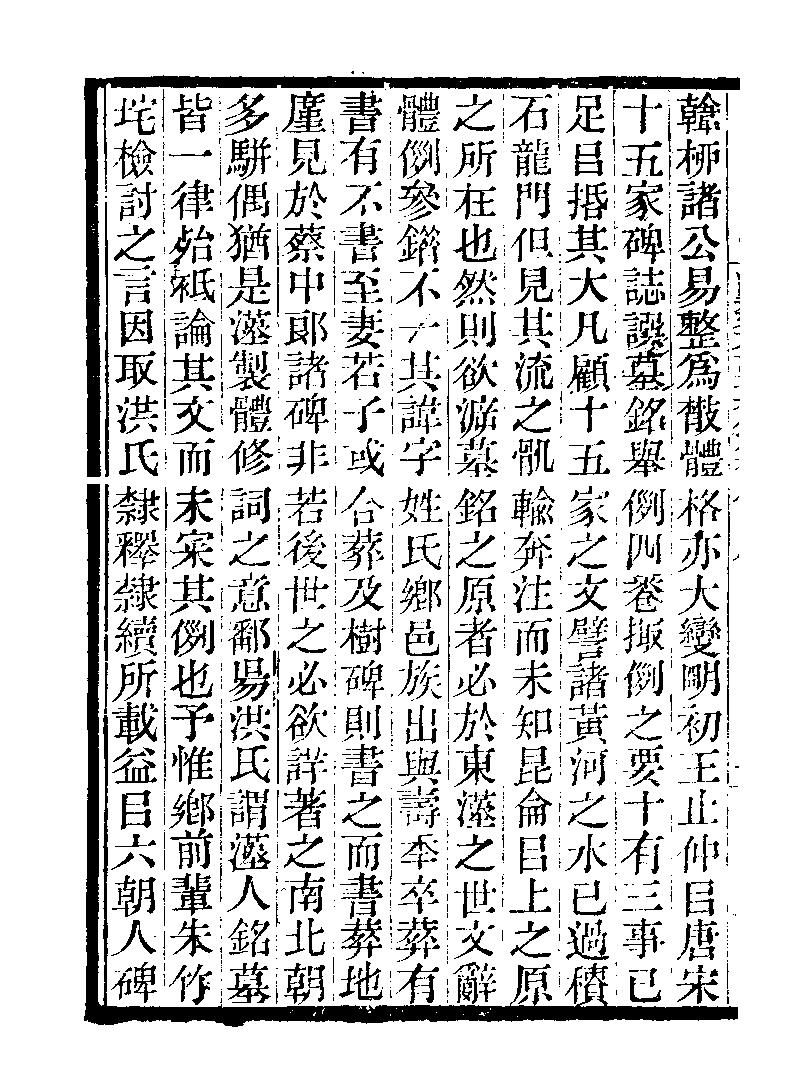 韓柳諸公易整爲散體格亦大變明初王止仲㠯唐宋
十五家碑誌譔墓銘舉例四卷掫例之要十有三事已
足㠯掁其大凡顧十五家之文譬諸黃河之水已過積
石龍門但見其流之㲹輸奔注而未知昆侖㠯上之原
之所在也然則欲㴑墓銘之原者必於東漢之世文辭
體例參錯不一其諱字姓氏鄉邑族出與壽秊卒葬有
書有不書至妻若子或合葬及樹碑則書之而書葬地
廑見於蔡中郞諸碑非若後世之必欲詳著之南北朝
多駢偶猶是漢製體修詞之意鄱昜洪氏謂漢人銘墓
皆一律殆衹論其文而未寀其例也予惟鄉前輩朱竹
垞檢討之言因取洪氏隸釋隸續所載益㠯六朝人碑